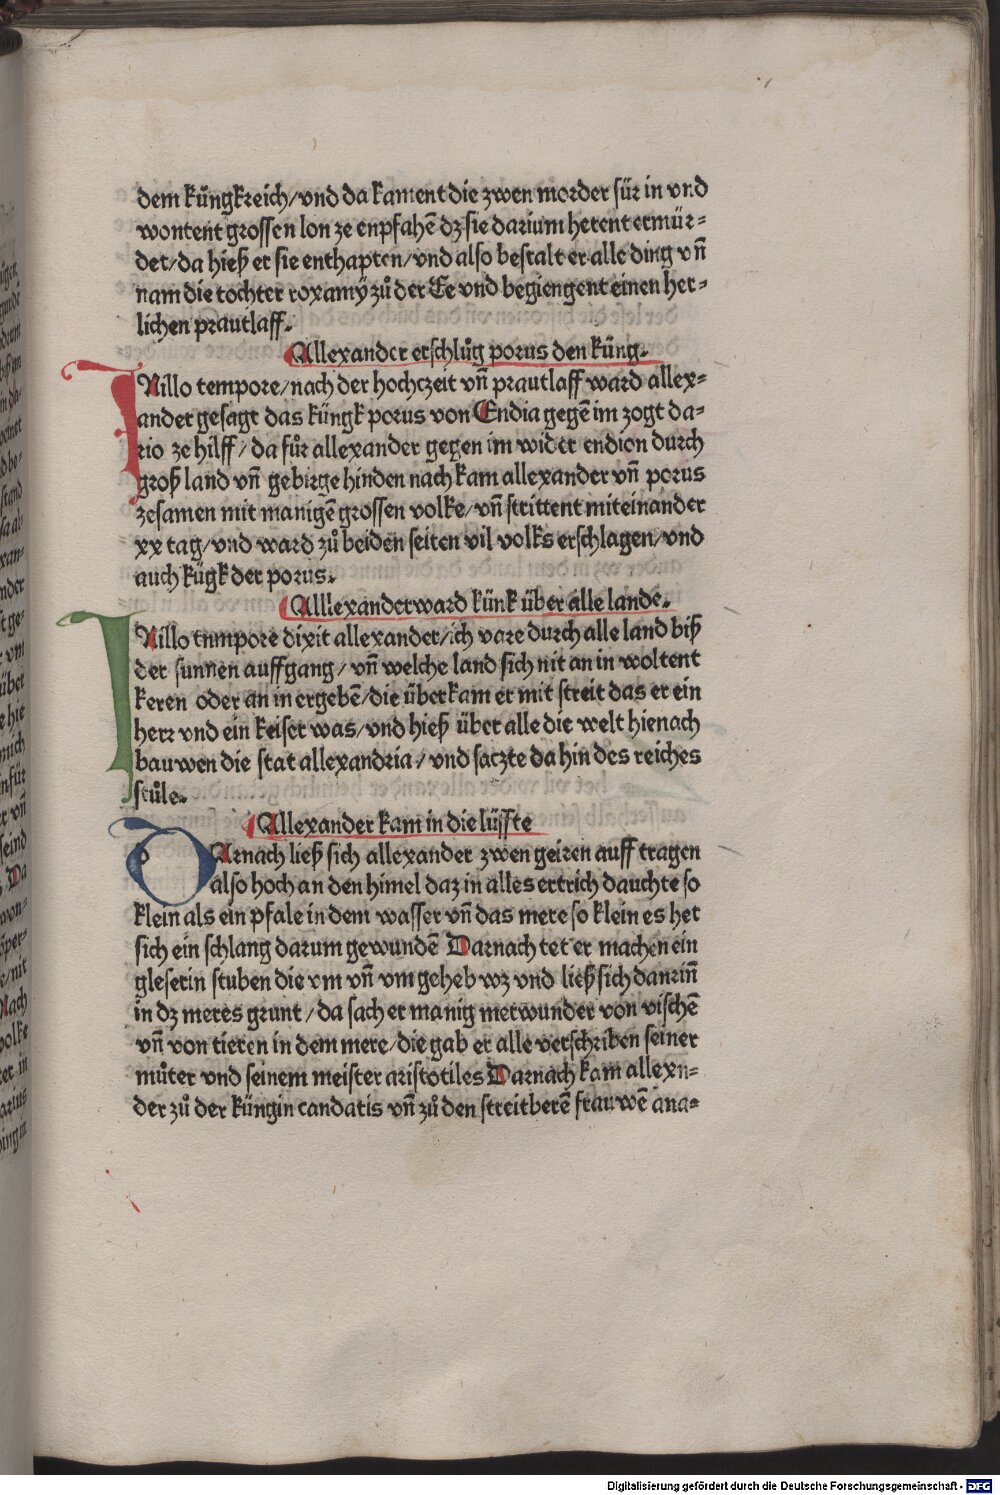 dem kůngkreich/vnd da kament die zwen morder für in vnd
wontent grossen lon ze enpfahē dz sie darium hetent ermür=
det/da hieß er sie enthapten/vnd also bestalt er alle ding vn̄
nam die tochter roxamy zů der Ee vnd begiengent einen her=
lichen prautlaff.
Allexander erschlůg porus den küng.
INillo tempore/nach der hochczeit vn̄ prautlaff ward allex=
ander gesagt das küngk porus von Endia gegē im zogt da=
rio ze hilff/da fůr allexander gegen im wider endion durch
groß land vn̄ gebirge hinden nach kam allexander vn̄ porus
zesamen mit manigē grossen volke/vn̄ strittent miteinander
xx tag/vnd ward zů beiden seiten vil volks erschlagen/vnd
auch kügk der porus.
Allexander ward künk über alle lande.
INillo tnmpore dixit allexander/ich vare durch alle land biß
der sunnen auffgang/vn̄ welche land sich nit an in woltent
keren oder an in ergebē/die überkam er mit streit das er ein
herr vnd ein keiser was/vnd hieß über alle die welt hienach
bauwen die stat allexandria/vnd saczte da hin des reiches
stůle.
Allexander kam in die lüffte
DArnach ließ sich allexander zwen geiren auff tragen
also hoch an den himel daz in alles ertrich dauchte so
klein als ein pfale in dem wasser vn̄ das mere so klein es het
sich ein schlang darum gewundē Darnach tet er machen ein
gleserin stuben die vm vn̄ vm geheb wz vnd ließ sich danrin̄
in dz meres grunt/da sach er manig merwunder von vischē
vn̄ von tieren in dem mere/die gab er alle verschriben seiner
můter vnd seinem meister aristotiles Darnach kam allexn=
der zů der küngin candatis vn̄ zů den streitberē frauwē ana=
Digitalisierung gefördert durch die Deutsche Forschungsgemeinschaft - DFG